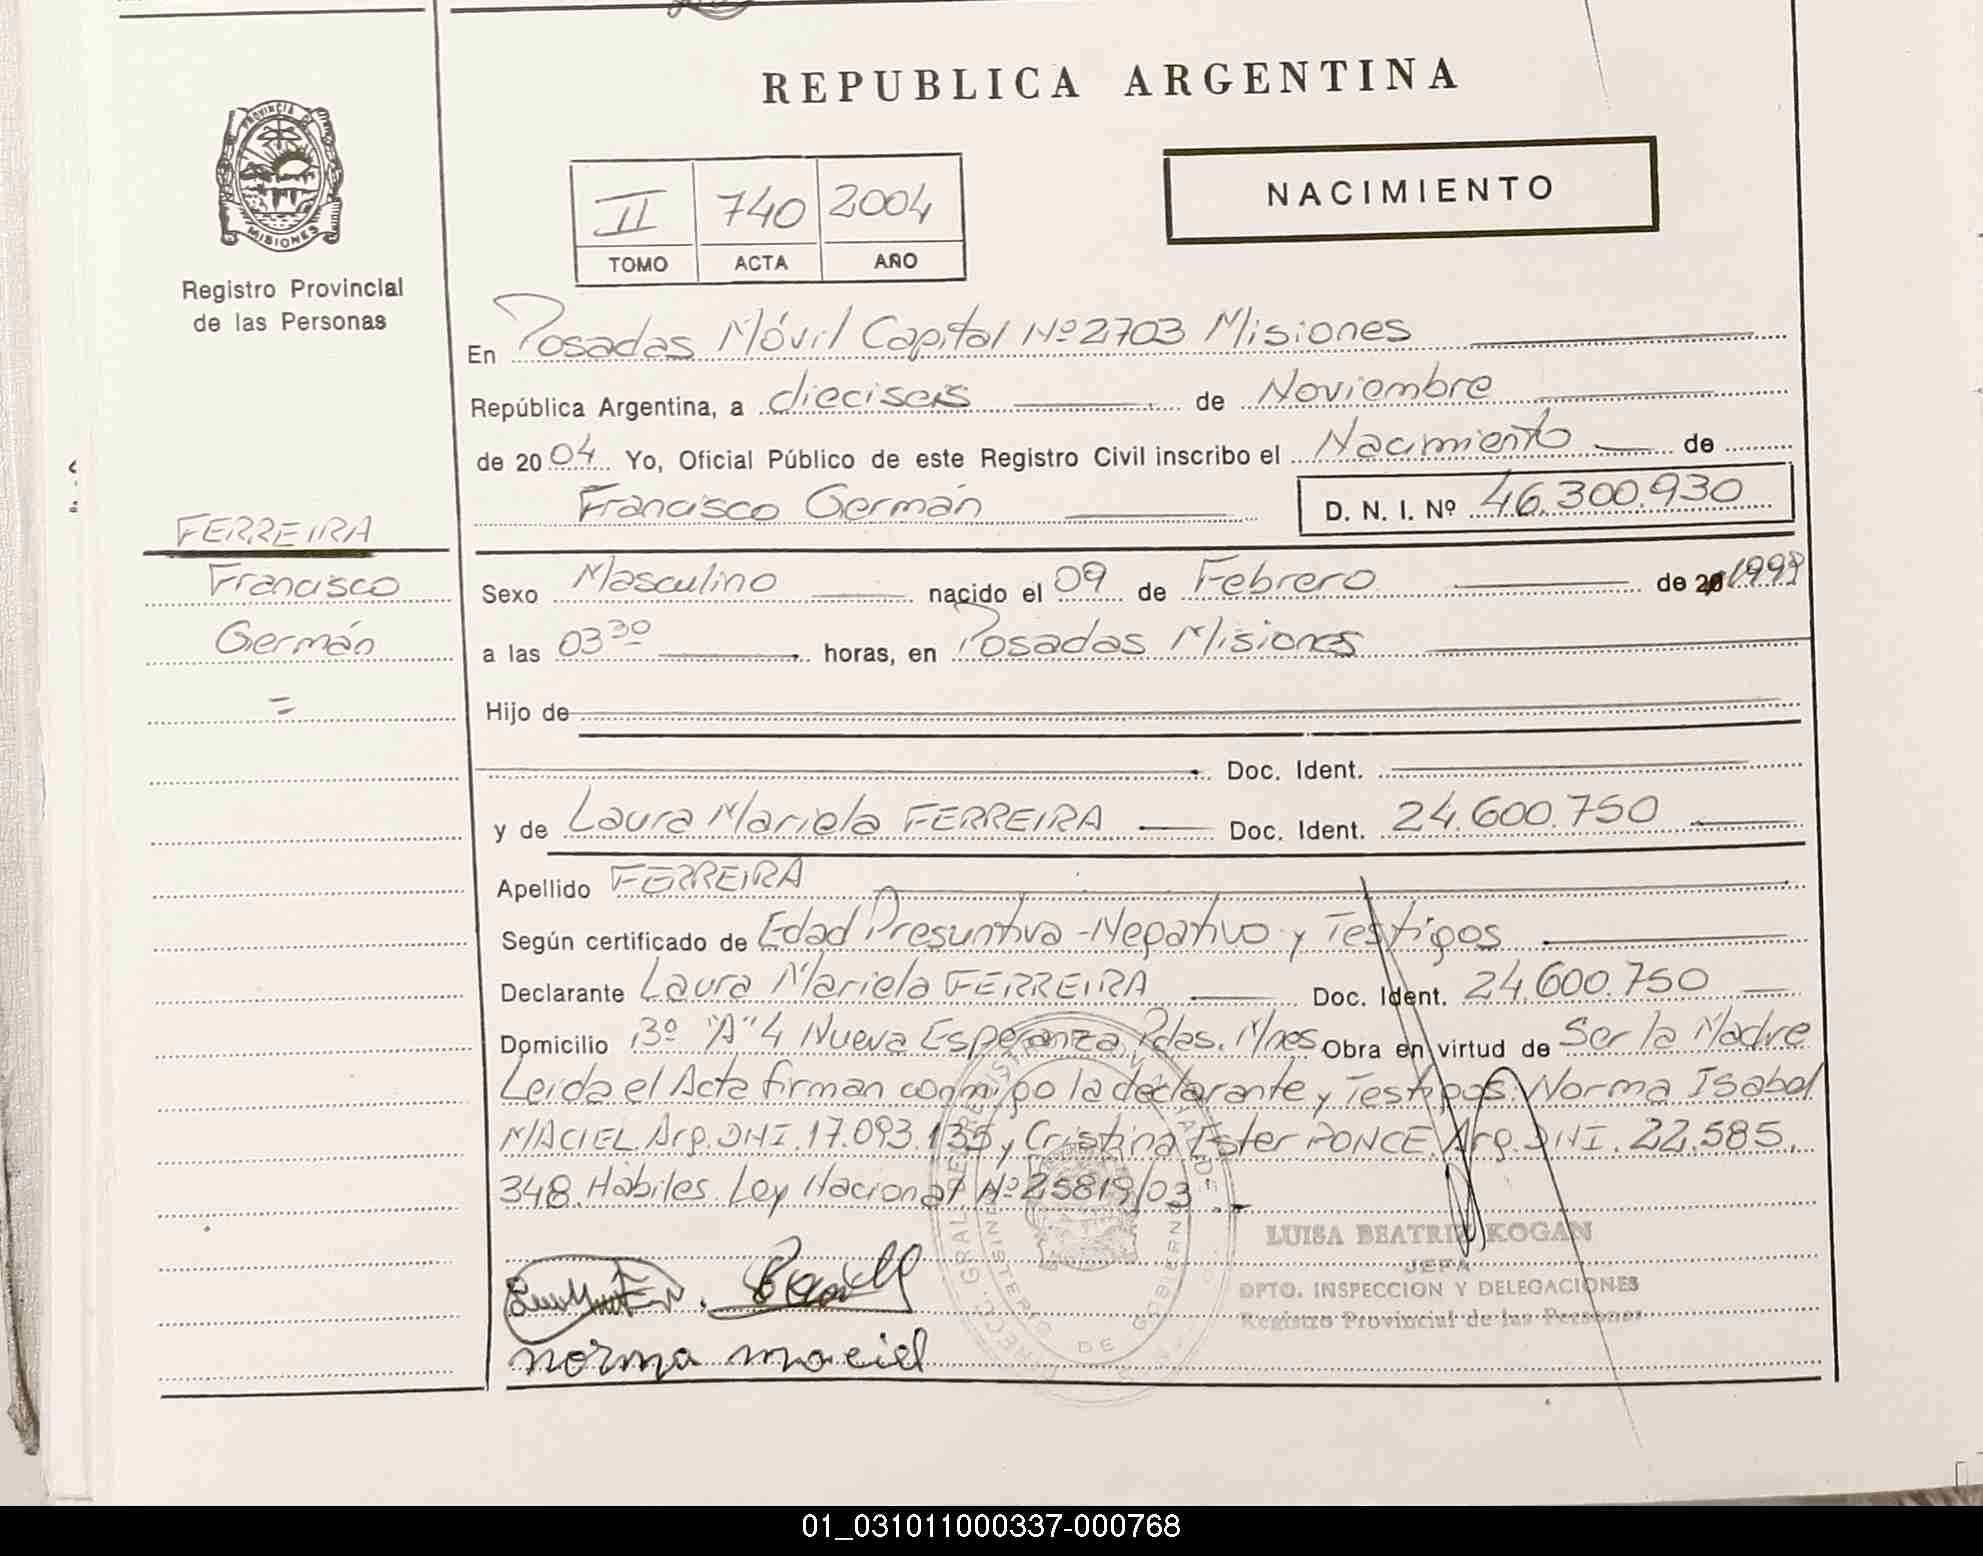 REPUBLICA ARGENTINA
PROVINCIA D
MISIONES
Registro Provincial
de las Personas
II 740 2004
TOMO ACTA AÑO
NACIMIENTO
En Posadas Móvil Capital Nº 2703 Misiones
República Argentina, a dieciseis de Noviembre
de 2004 Yo, Oficial Público de este Registro Civil inscribo el Nacimiento de
Francisco Germán D. N. I. Nº 46.300.930
FERREIRA
Francisco
Germán
=
Sexo Masculino nacido el 09 de Febrero de 20 1999
a las 03 30 horas, en Posadas Misiones
Hijo de
Doc. Ident.
y de Laura Mariela FERREIRA Doc. Ident. 24.600.750
Apellido FERREIRA
Según certificado de Edad Presuntiva - Negativo y Testigos
Declarante Laura Mariela FERREIRA Doc. Ident. 24.600.750
Domicilio 13º "A" 4 Nueva Esperanza Pdas. Mnes Obra en virtud de Ser la Madre
Leida el Acta firman conmigo la declarante y Testigos: Norma Isabel
MACIEL Arg. DNI. 17.093.135 y Cristina Ester PONCE Arg. DNI. 22.585.
348. Hábiles. Ley Nacional Nº 25819/03.-
LUISA BEATRIZ KOGAN
JEFA
DPTO. INSPECCION Y DELEGACIONES
Registro Provincial de las Personas
norma maciel
01_031011000337-000768